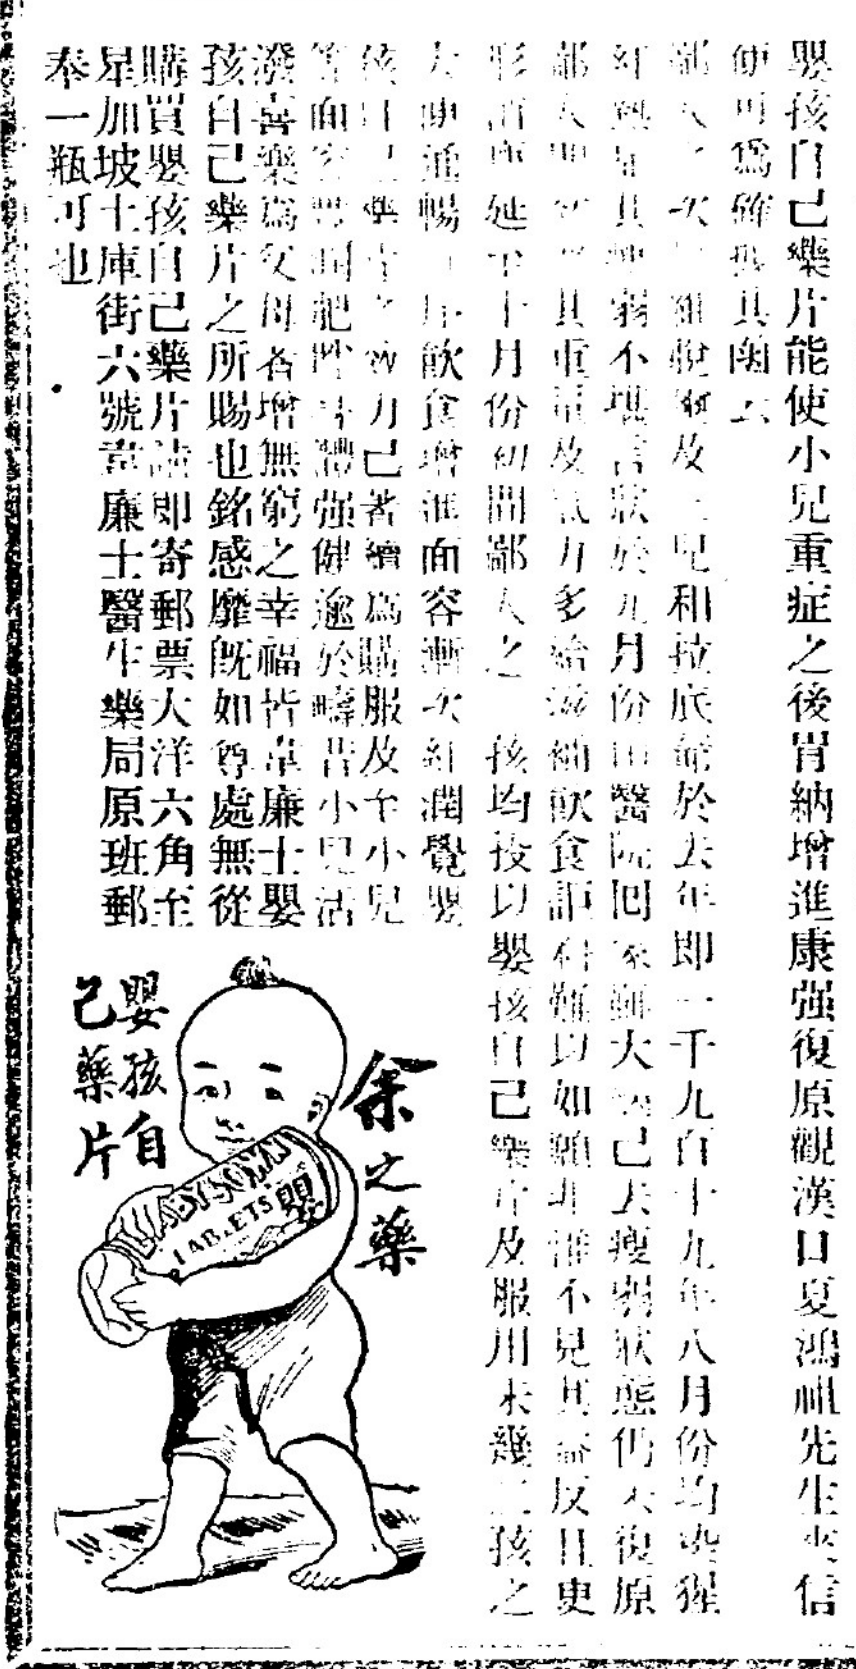 嬰孩自己藥片能使小兒重症之後胃納增進康强復原觀漢口夏鴻祖先生來信
便可爲確據其函云
鄙人之次 維 及 兒和拉底 於去年即一千九百十九年八月份均染猩
紅熱症其 弱不堪言狀於九月份由醫院回家雖大 已去瘦弱狀態仍未復原
鄙人 其重量及氣力多給滋補飲食詎料難以如願非惟不見其益反且更
形消瘦延至十月份初間鄙人之 孩均投以嬰孩自己藥片及服用未幾二孩之
大便通暢 飲食增進面容漸次紅潤覺嬰
孩自己藥片之效力已著續爲購服及至小兒
等面容豐潤肥胖身體强健逾於疇昔小兒活
潑喜樂爲父母者增無窮之幸福皆韋廉士嬰
孩自己藥片之所賜也銘感靡旣如尊處無從
購買嬰孩自己藥片請即寄郵票大洋六角至
星加坡土庫街六號韋廉士醫生藥局原班郵
奉一瓶可也
余之藥
嬰孩自
己藥片
BABY'S OWN
TABLETS
嬰